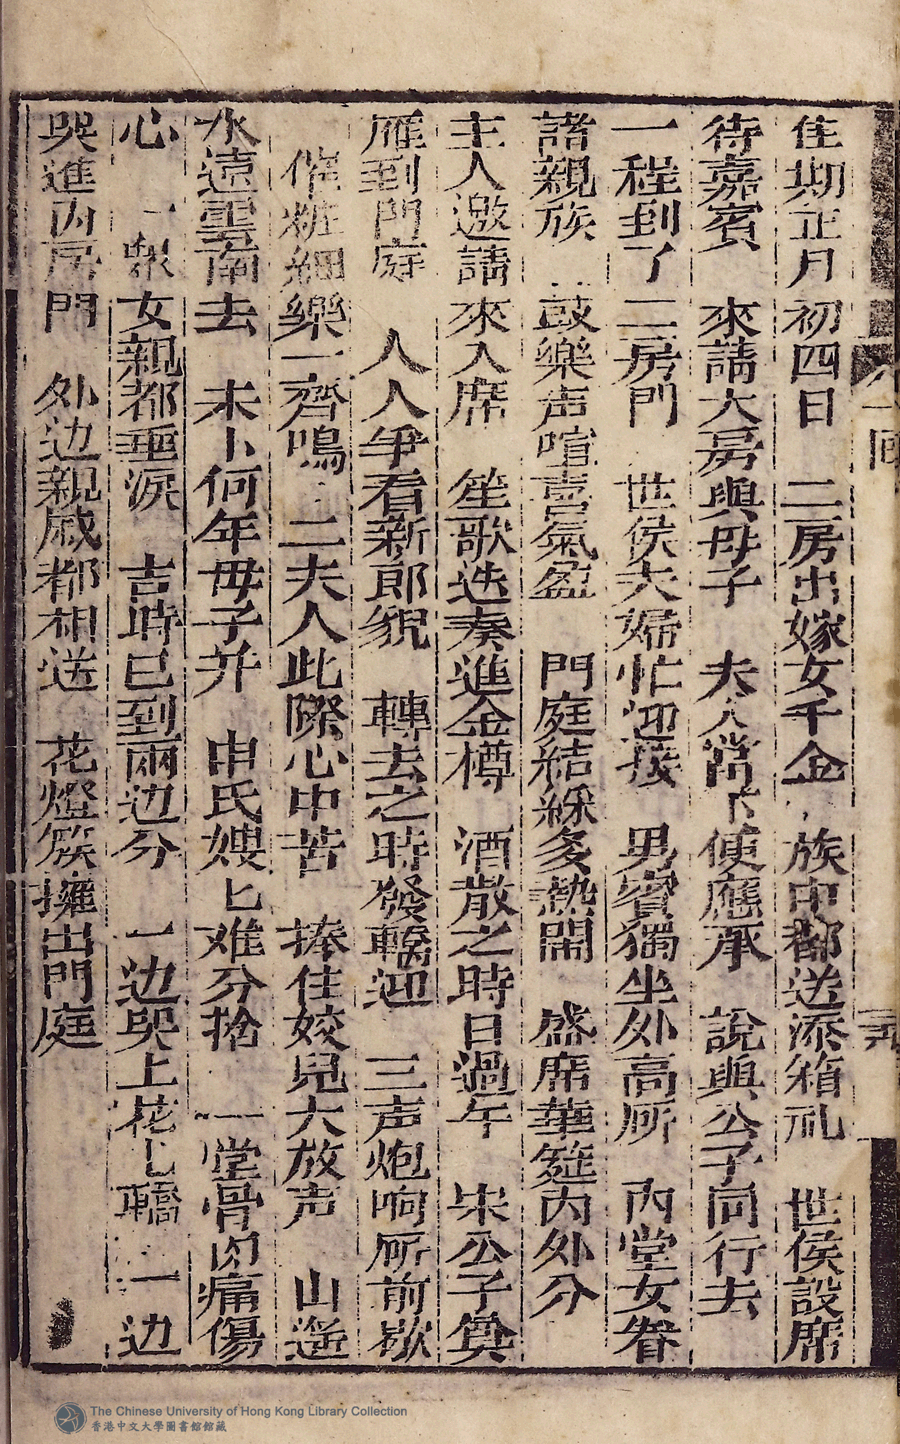 佳期正月初四日　二房出嫁女千金　族中都送添箱礼　世侯設席
待嘉賓　來請大房與母子　夫人當下便應承　說與公子同行去
一程到了二房門　世侯夫婦忙迎接　男賓獨坐外高厛　內堂女眷
諸親族　鼓樂声喧喜氣盈　門庭結綵多熱鬧　盛席華筵內外分
主人邀請來入席　笙歌迭奏進金樽　酒散之時日過午　宋公子奠
雁到門庭　人人爭看新郎貌　轉去之時發轎迎　三声炮响厛前歇
催粧細樂一齊鳴　二夫人此際心中苦　捧住姣兒大放声　山遙
水遠雲南去　未卜何年母子并　申氏嫂匕难分捨　一堂骨肉痛傷
心　一衆女親都垂淚　吉時已到兩边分　一边哭上花匕轎　一边
哭進內房門　外边親戚都相送　花燈簇擁出門庭
The Chinese University of Hong Kong Library Collection
香港中文大學圖書館館藏